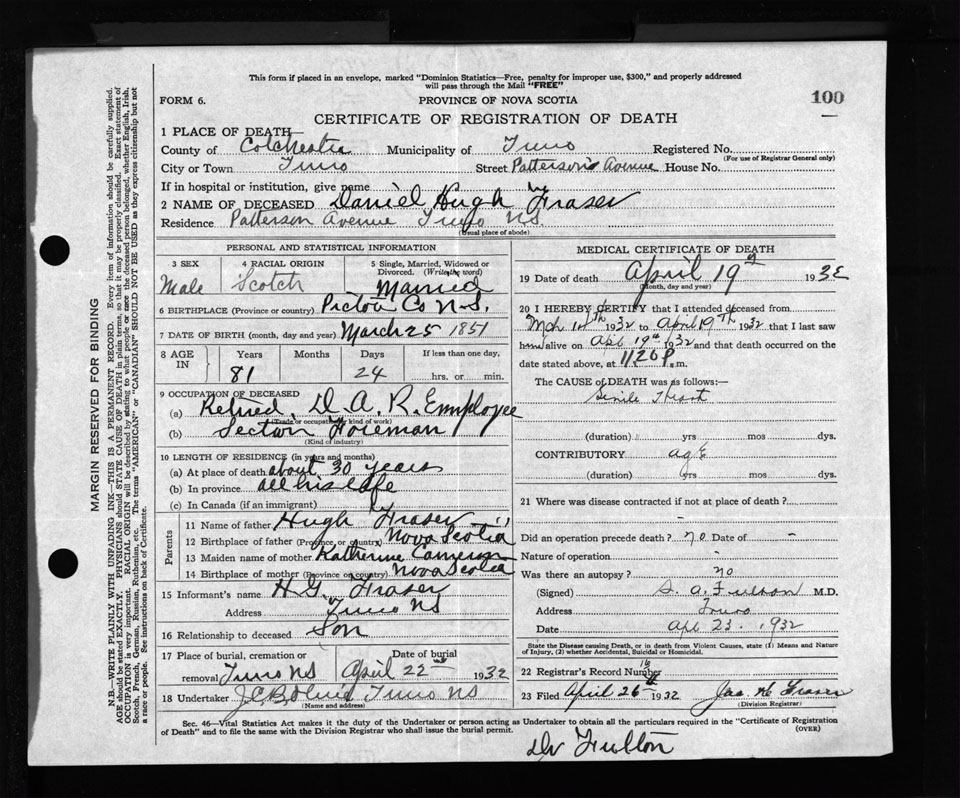 This form if placed in an envelope, marked "Dominion Statistics—Free, penalty for improper use, $300," and properly addressed
will pass through the Mail "FREE"
FORM 6. PROVINCE OF NOVA SCOTIA 100
CERTIFICATE OF REGISTRATION OF DEATH
1 PLACE OF DEATH—
County of Colchester Municipality of Truro Registered No.
(For use of Registrar General only)
City or Town Truro Street Patterson's Avenue House No.
If in hospital or institution, give name
2 NAME OF DECEASED Daniel Hugh Fraser
Residence Patterson Avenue Truro N.S.
(Usual place of abode)
PERSONAL AND STATISTICAL INFORMATION
3 SEX Male
4 RACIAL ORIGIN Scotch
5 Single, Married, Widowed or Divorced. (Write the word) Married
6 BIRTHPLACE (Province or country) Pictou Co N.S.
7 DATE OF BIRTH (month, day and year) March 25 1851
8 AGE IN Years 81 Months Days 24 If less than one day, hrs. or min.
9 OCCUPATION OF DECEASED
(a) Retired, D.A.R. Employee
(Trade or occupation, kind of work)
(b) Section Foreman
(Kind of industry)
10 LENGTH OF RESIDENCE (in years and months)
(a) At place of death about 30 years
(b) In province all his life
(c) In Canada (if an immigrant)
Parents
11 Name of father Hugh Fraser
12 Birthplace of father (Province or country) Nova Scotia
13 Maiden name of mother Katherine Cameron
14 Birthplace of mother (Province or country) Nova Scotia
15 Informant's name H.G. Fraser
Address Truro NS
16 Relationship to deceased Son
17 Place of burial, cremation or removal Truro NS Date of burial April 22nd 1932
18 Undertaker Truro NS
(Name and address)
MEDICAL CERTIFICATE OF DEATH
19 Date of death April 19th 1932
(Month, day and year)
20 I HEREBY CERTIFY that I attended deceased from
Mch 14th 1932 to April 19th 1932 that I last saw
him alive on Apl 19th 1932 and that death occurred on the
date stated above, at 11.20 P.m.
The CAUSE OF DEATH was as follows:—
Senile
(duration) yrs mos dys.
CONTRIBUTORY age
(duration) yrs mos dys.
21 Where was disease contracted if not at place of death?
Did an operation precede death? no Date of -
Nature of operation -
Was there an autopsy? no
(Signed) S. A. Fulton M.D.
Address Truro
Date Apl 23. 1932
State the Disease causing Death, or in death from Violent Causes, state (1) Means and Nature
of Injury, (2) whether Accidental, Suicidal or Homicidal.
22 Registrar's Record Number
23 Filed April 26th 1932 Jas. H. Fraser
(Division Registrar)
Sec. 46—Vital Statistics Act makes it the duty of the Undertaker or person acting as Undertaker to obtain all the particulars required in the "Certificate of Registration
of Death" and to file the same with the Division Registrar who shall issue the burial permit.
(OVER)
Dr Fulton
MARGIN RESERVED FOR BINDING
N.B.—WRITE PLAINLY WITH UNFADING INK—THIS IS A PERMANENT RECORD. Every item of information should be carefully supplied.
AGE should be stated EXACTLY. PHYSICIANS should STATE CAUSE OF DEATH in plain terms, so that it may be properly classified. Exact statement of
OCCUPATION is very important. RACIAL ORIGIN will be described by stating to what people or race the deceased person belonged, whether English, Irish,
Scotch, French, German, Russian, Ruthenian, etc. The terms "AMERICAN" or "CANADIAN" SHOULD NOT BE USED as they express citizenship but not
a race or people. See instructions on back of Certificate.